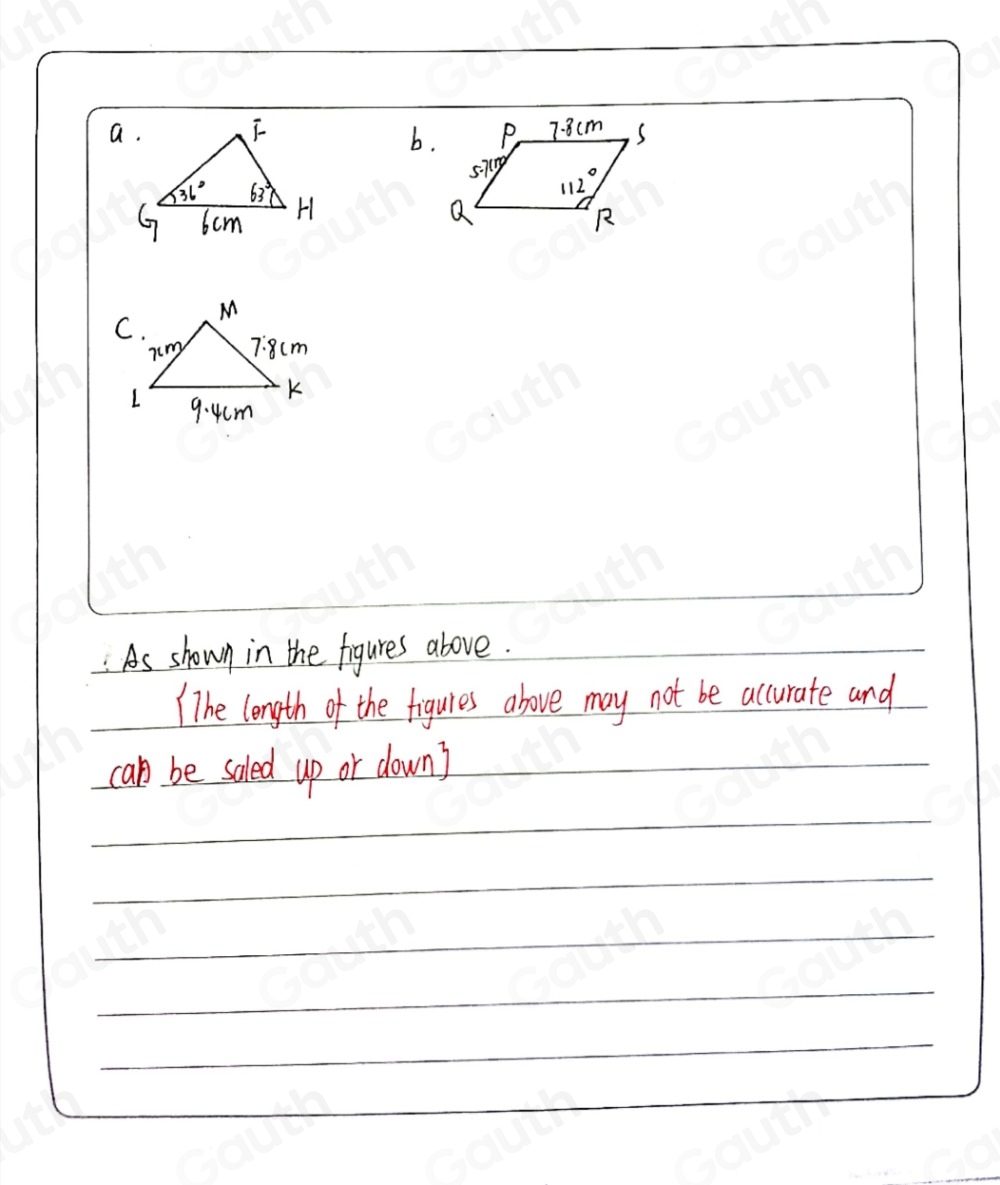 a.
F
36°
63°
G
6cm
H
b.
P
7.8cm
S
5.7cm
112°
Q
R
C.
M
7cm
7.8cm
L
K
9.4cm
: As shown in the figures above.
{The length of the figures above may not be accurate and
can be scled up or down}
Gauth